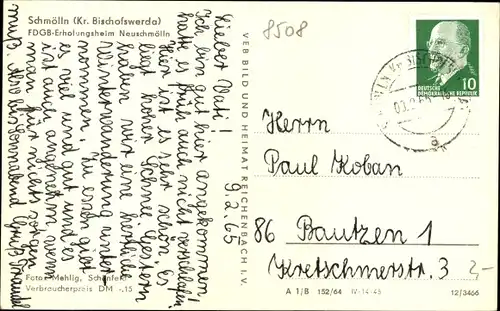 Schmölln (Kr. Bischofswerda)
FDGB-Erholungsheim Neuschmölln
8508
Lieber Vati!
Ich bin gut hier angekommen,
hatte es früh auch nicht verschlafen.
Hier ist es sehr schön. Es
liegt hoher Schnee. Gestern
haben wir eine herrliche
Winterwanderung unter-
nommen. Zu essen gibt
es viel und gut und es
ist auch angenehm, wenn
man für nichts sorgen
muß. Also bis Sonnabend Gruß
9.2.65
VEB BILD UND HEIMAT REICHENBACH I. V.
DEUTSCHE
DEMOKRATISCHE REPUBLIK
10
a
Herrn
Paul Koban
86 Bautzen 1
Kretschmerstr. 3
2,-
Foto: Mehlig, Schönfeld
Verbraucherpreis DM -.15
A 1/B 152/64 IV-14-45 12/3466